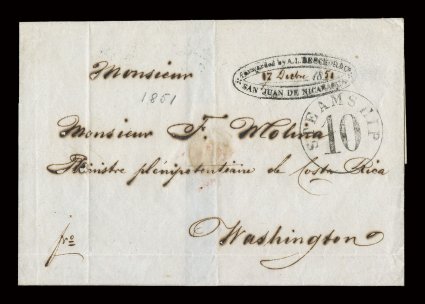 Forwarded by A. I. BESCHOR
17 Decbre 1851
SAN JUAN DE NICARAGUA
Monsieur
1851
STEAMSHIP
10
Monsieur F. Molina
Ministre plénipotentiaire de Costa Rica
Washington